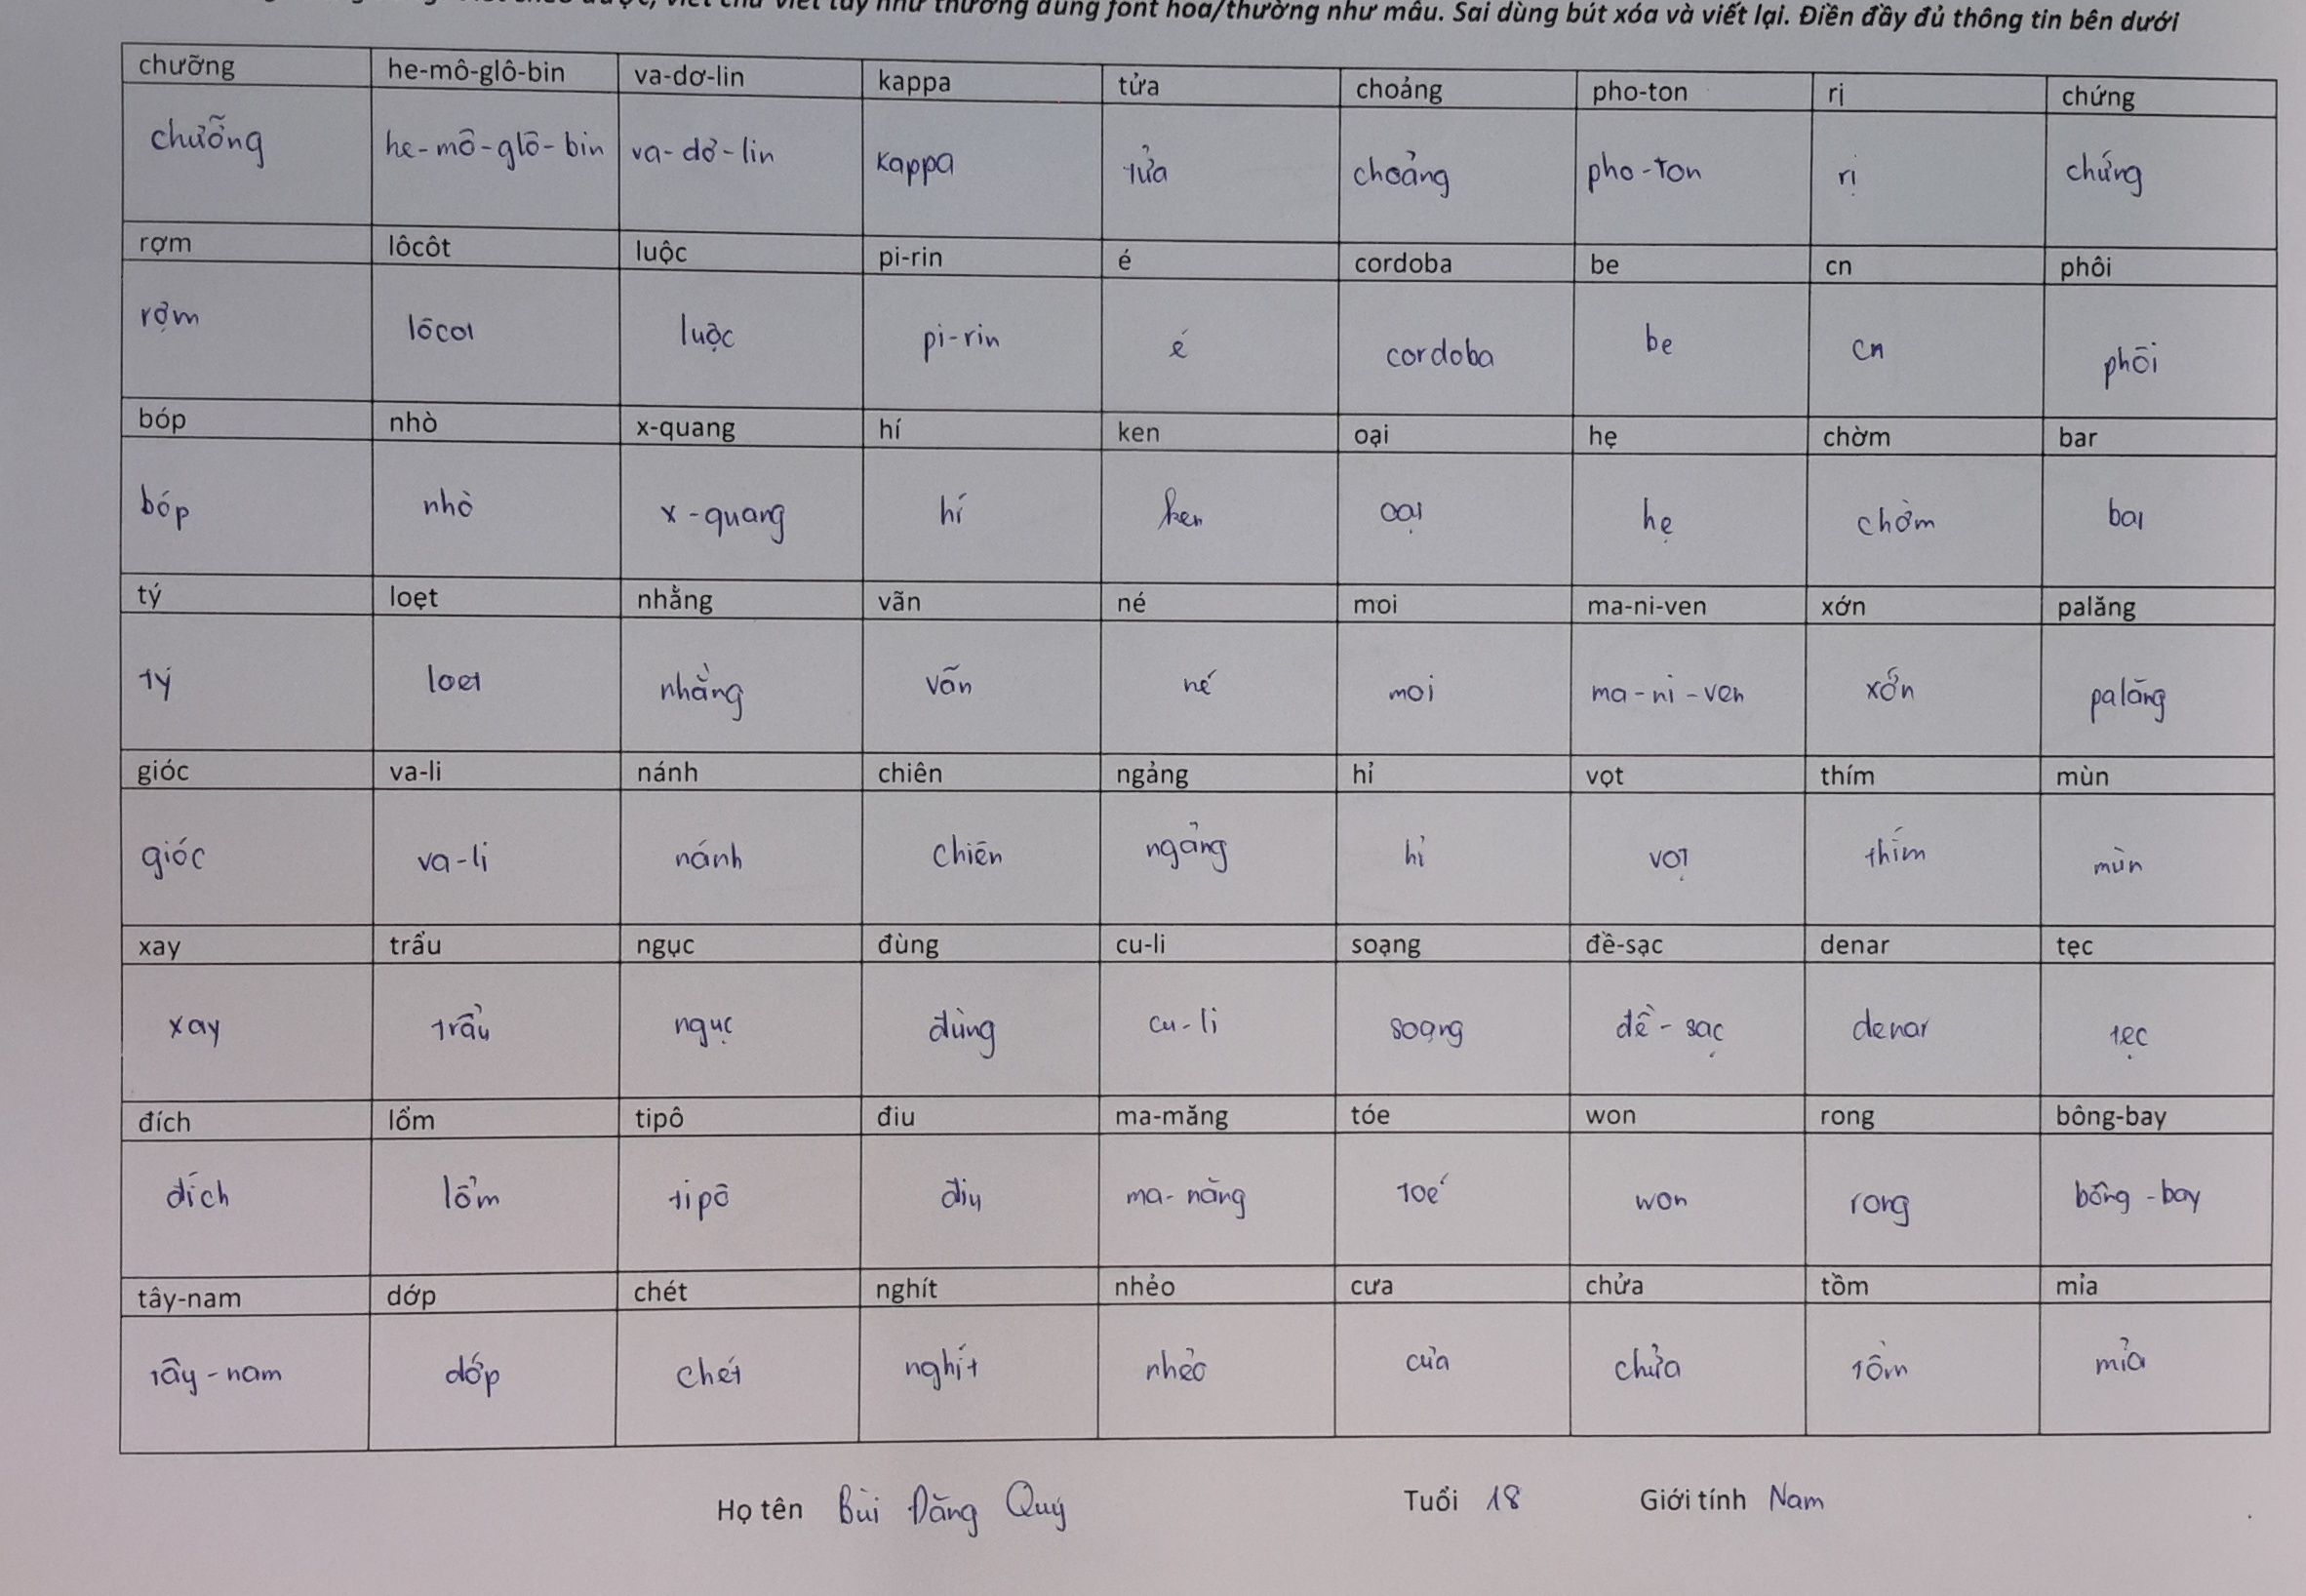 viết chữ viết tay như thường dùng font hoa/thường như mẫu. Sai dùng bút xóa và viết lại. Điền đầy đủ thông tin bên dưới
chưỡng he-mô-glô-bin va-dơ-lin kappa tửa choảng pho-ton rị chứng
chưỡng he-mô-glô-bin va-dơ-lin kappa tửa choảng pho-ton rị chứng
rợm lôcôt luộc pi-rin é cordoba be cn phôi
rợm lôcot luộc pi-rin é cordoba be cn phôi
bóp nhò x-quang hí ken oại hẹ chờm bar
bóp nhò x-quang hí ken oại hẹ chờm bar
tý loẹt nhằng vãn né moi ma-ni-ven xớn palăng
tý loet nhằng vãn né moi ma-ni-ven xớn palăng
gióc va-li nánh chiên ngảng hỉ vọt thím mùn
gióc va-li nánh chiên ngảng hỉ vọt thím mùn
xay trẩu ngục đùng cu-li soạng đề-sạc denar tẹc
xay trẩu ngục đùng cu-li soạng đề-sạc denar tẹc
đích lổm tipô điu ma-măng tóe won rong bông-bay
đích lổm tipô điu ma-năng toé won rong bông-bay
tây-nam dớp chét nghít nhẻo cưa chửa tồm mỉa
tây-nam dớp chét nghít nhẻo cưa chửa tồm mỉa
Họ tên Bùi Đăng Quý Tuổi 18 Giới tính Nam